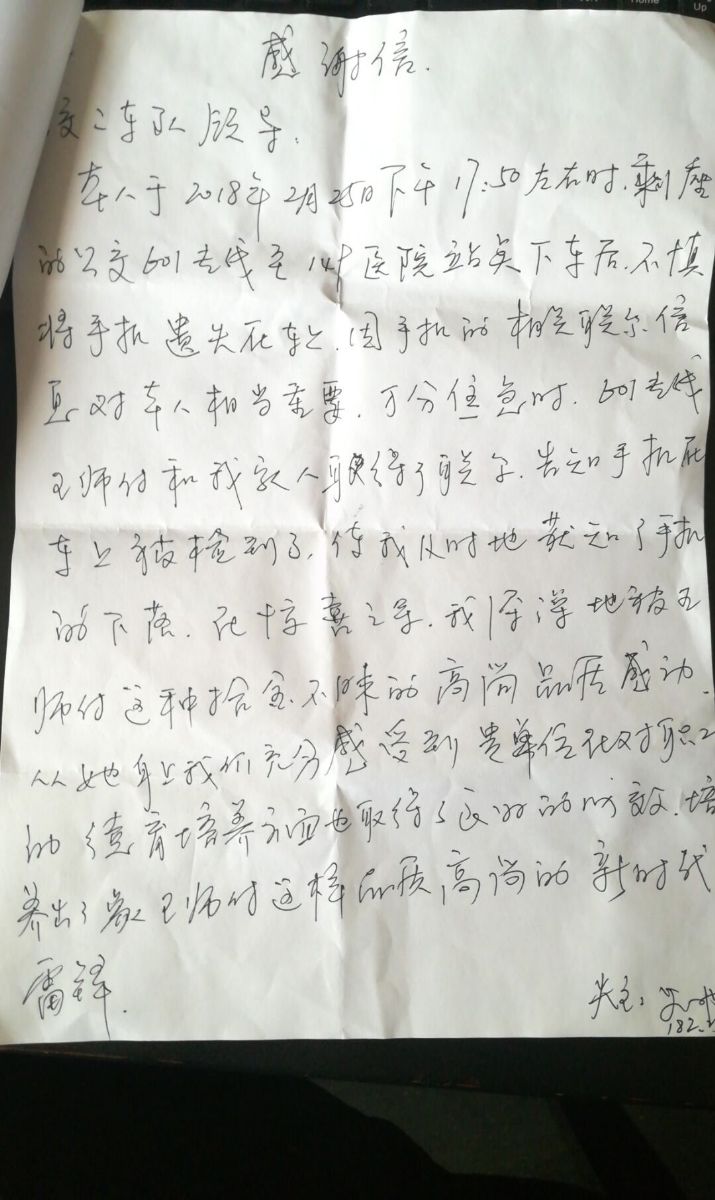 感谢信.
交二车队领导:
本人于2018年2月25日下午17:50左右时.乘座
的公交601专线至148医院站点下车后.不慎
将手机遗失在车上.因手机的相关联系信
息对本人相当重要.万分焦急时.601专线
王师付和我家人取得了联系.告知手机在
车上被捡到了.使我及时地获知了手机
的下落.在惊喜之余.我深深地被王
师付这种拾金不昧的高尚品质感动.
从她身上我们充分感受到贵单位在对职工
的德育培养方面也取得了良好的成效.培
养出了象王师付这样品质高尚的新时代
雷锋.
失主:
182